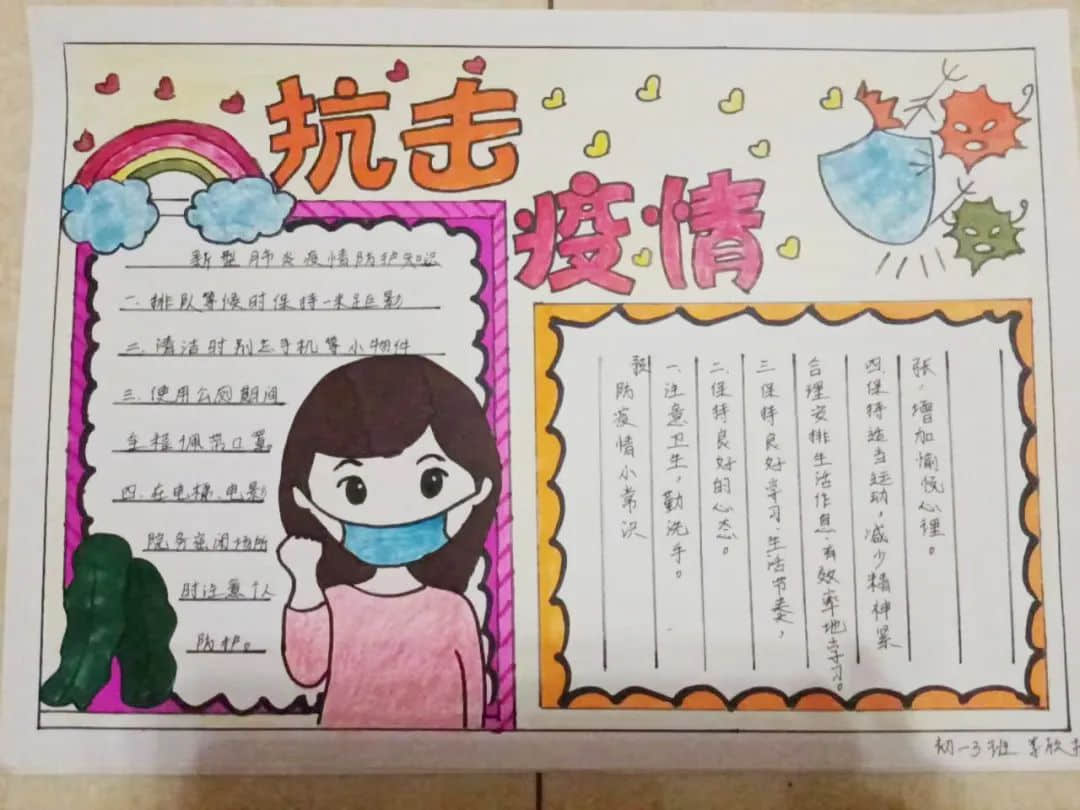 抗击
疫情
新型肺炎疫情防护知识
一.排队等候时保持一米距影
二.清洁时别忘手机等小物件
三.使用公厕期间
全程佩带口罩
四.在电梯、电影
院等密闭场所
时注意个人
防护。
预防疫情小常识
一、注意卫生，勤洗手。
二.保持良好的心态。
三.保持良好学习.生活节奏，
合理安排生活作息.有效率地学习。
四.保持适当运动，减少精神紧
张，增加愉悦心理。
初一3班 李欣